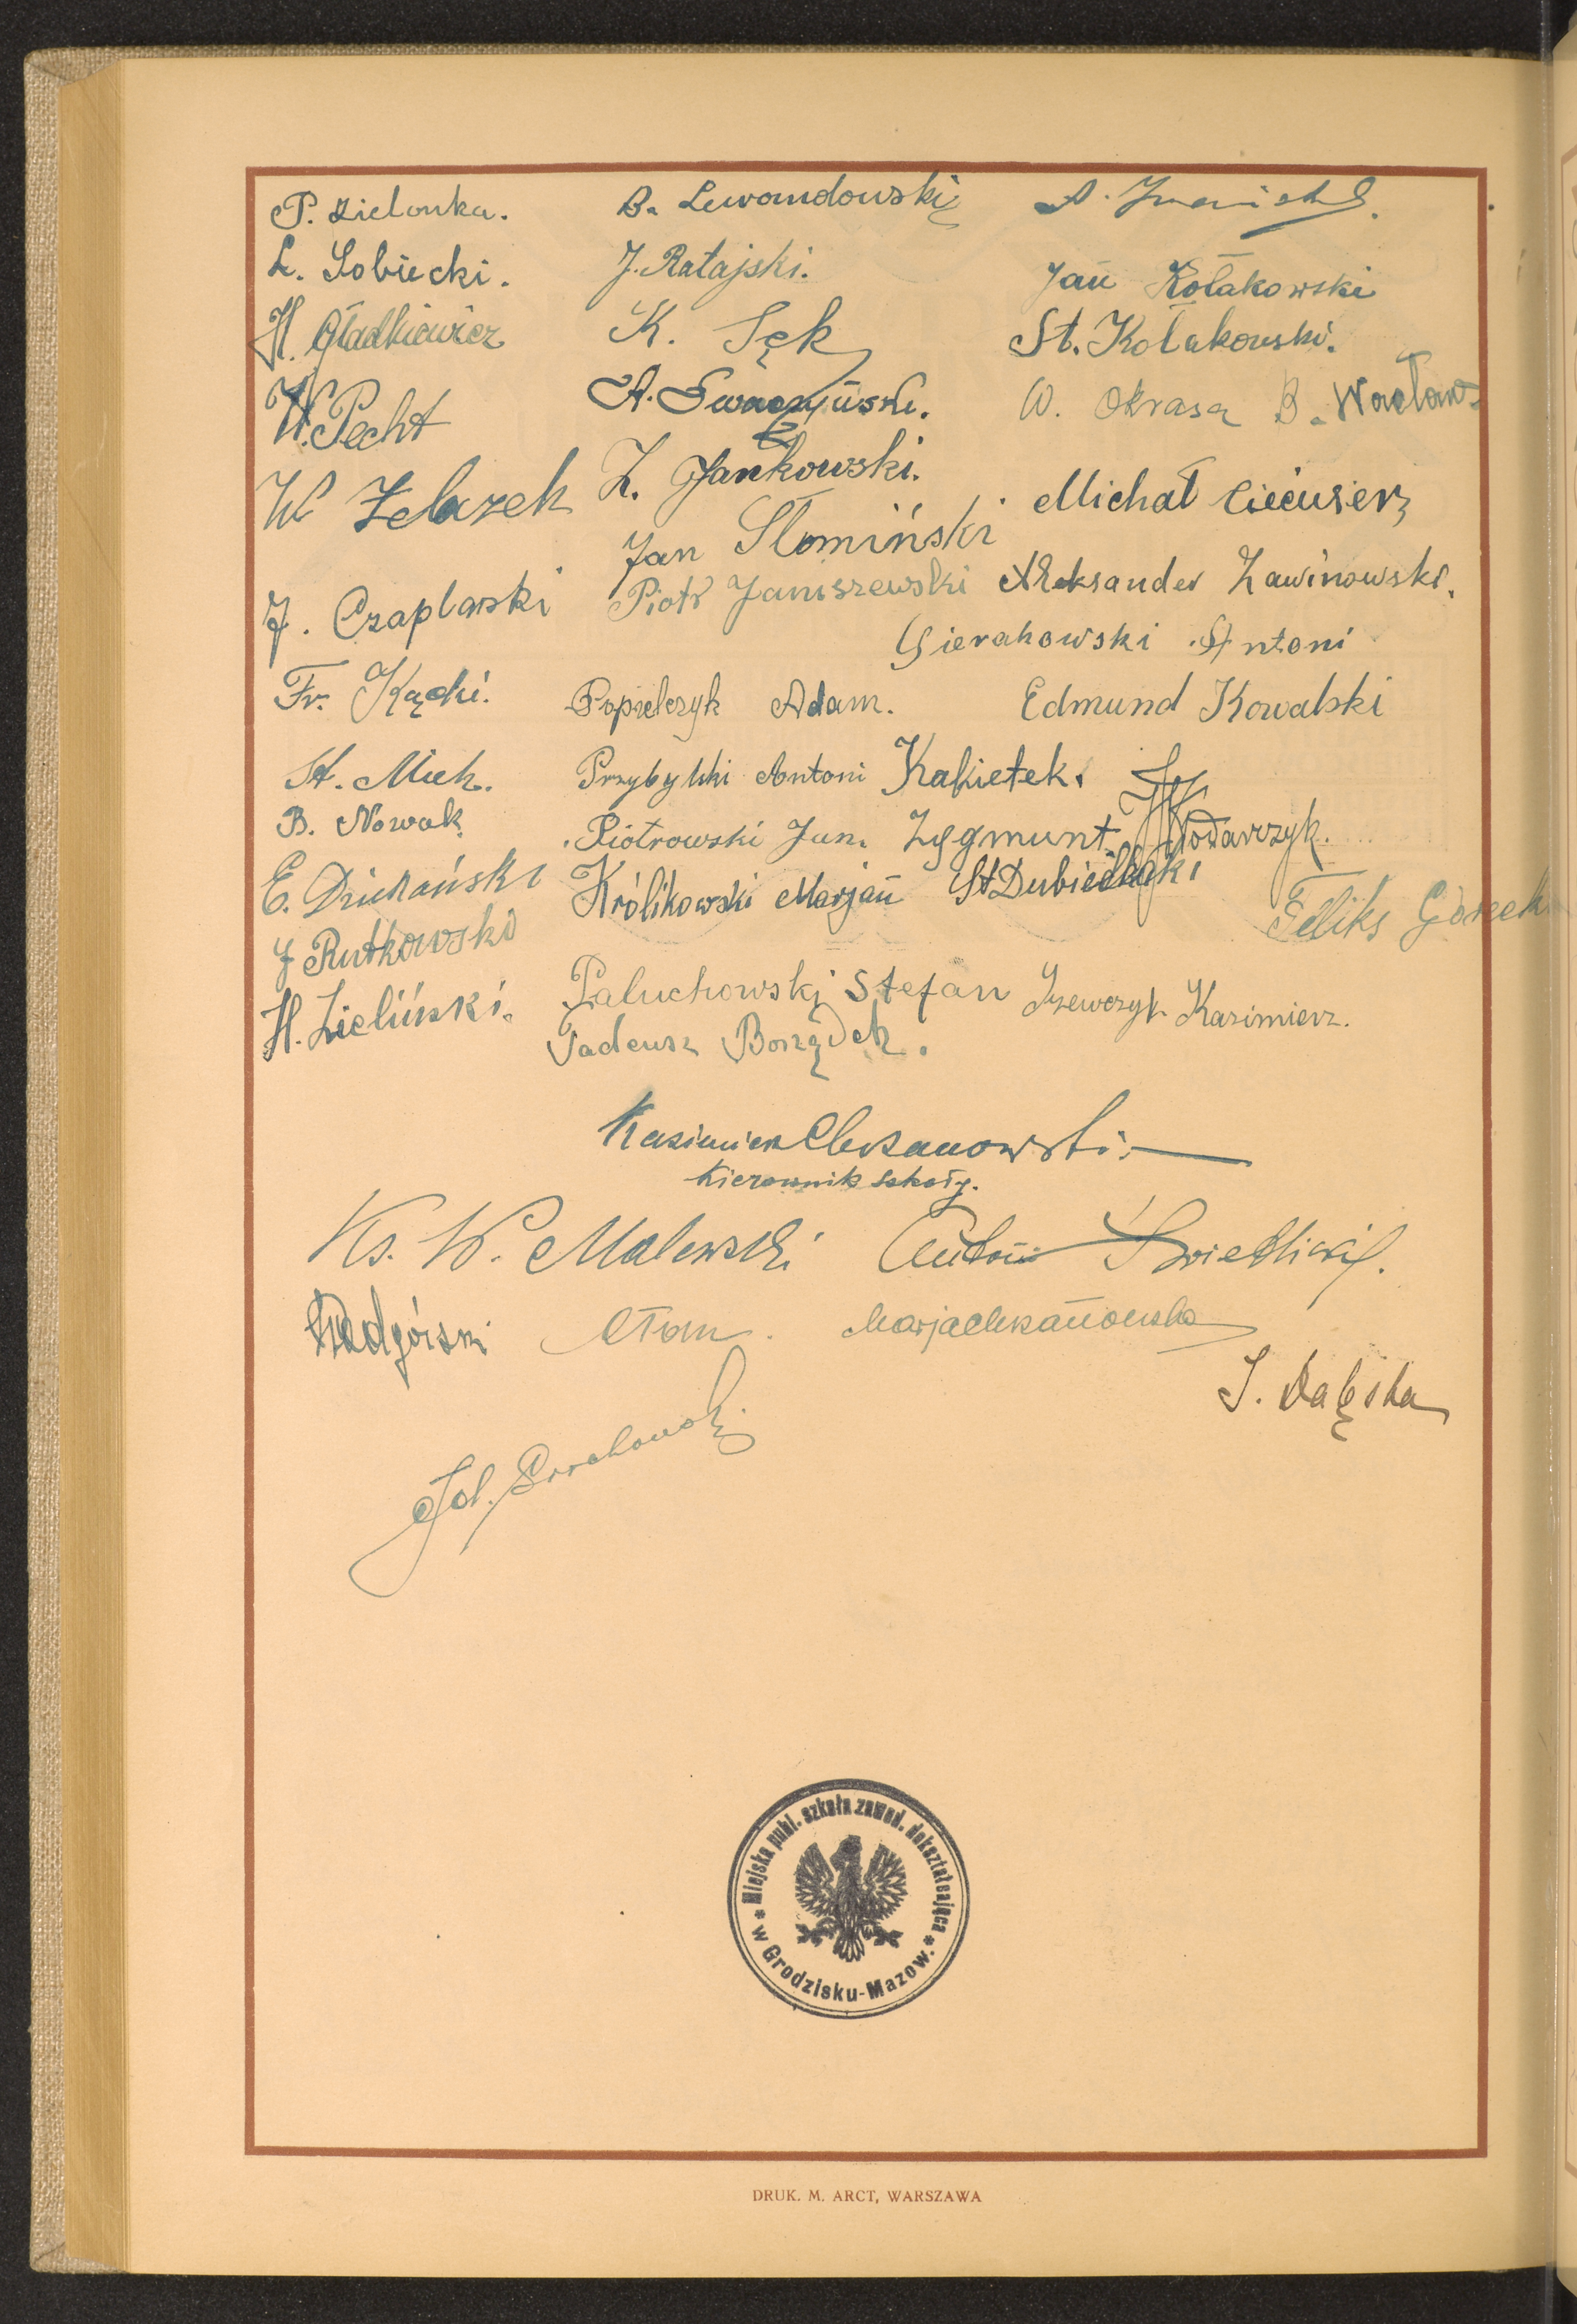 P. Zielonka. B. Lewandowski
L. Sobiecki. J. Ratajski. Jan Kołakowski
H. Gładkiewicz K. Sęk St. Kołakowski.
W. Pecht A. W. Okrasa B. Wacław
W Żelazek Z. Jankowski. Michał
Jan Słomiński
J. Czaplarski Piotr Janiszewski Aleksander Zawinowski.
Sierakowski Antoni
Fr. Kącki. Popielczyk Adam. Edmund Kowalski
St. Przybylski Antoni Kakietek.
B. Nowak Piotrowski Jan. Zygmunt Włodarczyk.
E. Królikowski Marjan St Dubielecki
J Rutkowski Feliks Gąsecki
H. Zieliński. Paluchowski Stefan Szewczyk Kazimierz.
Tadeusz Borządek.
Kazimierz Chrzanowski.
Kierownik szkoły.
Ks. W. Malewski Antoni Świetlicki.
Podgórski Marja Chrzanowska
J. Dąbska
Miejska publ. szkoła zawod. dokształcająca
* w Grodzisku-Mazow. *
DRUK. M. ARCT, WARSZAWA